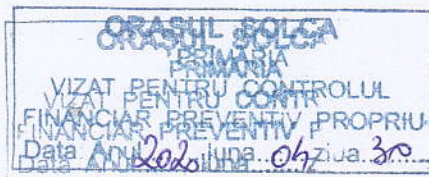 ORAȘUL SOLCA
PRIMĂRIA
VIZAT PENTRU CONTROLUL
FINANCIAR PREVENTIV PROPRIU
Data Anul 2020 luna 04 ziua 30